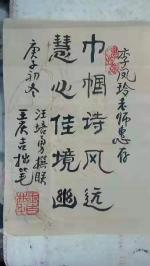 李凤玲老师惠存
巾帼诗风远
慧心佳境幽
庚子初冬
汪培勇撰联
王庆吉拙笔